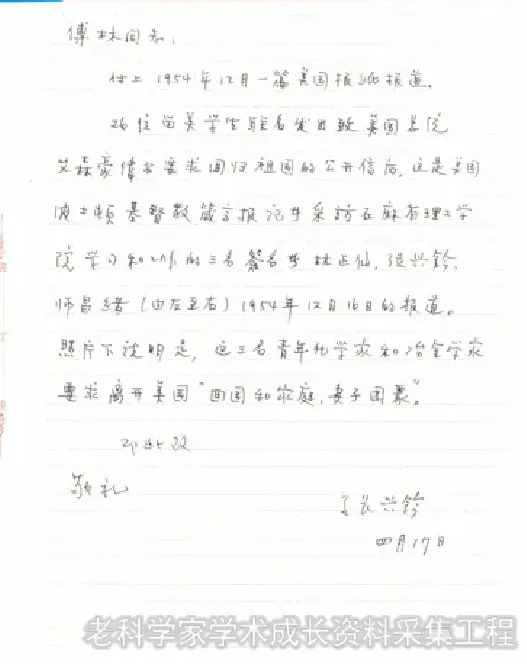 傅林同志，
付上1954年12月一篇美国报纸报道。
26位留美学生联名发出致美国总统
艾森豪伟尔要求回归祖国的公开信后，这是美国
波士顿基督教箴言报记者采访在麻省理工学
院学习和工作的三名签名者林正仙，张兴钤，
师昌绪（由左至右）1954年12月16日的报道。
照片下说明是，这三名青年化学家和冶金学家
要求离开美国“回国和家庭，妻子团聚”。
即此致
敬礼
张兴钤
四月17日
老科学家学术成长资料采集工程